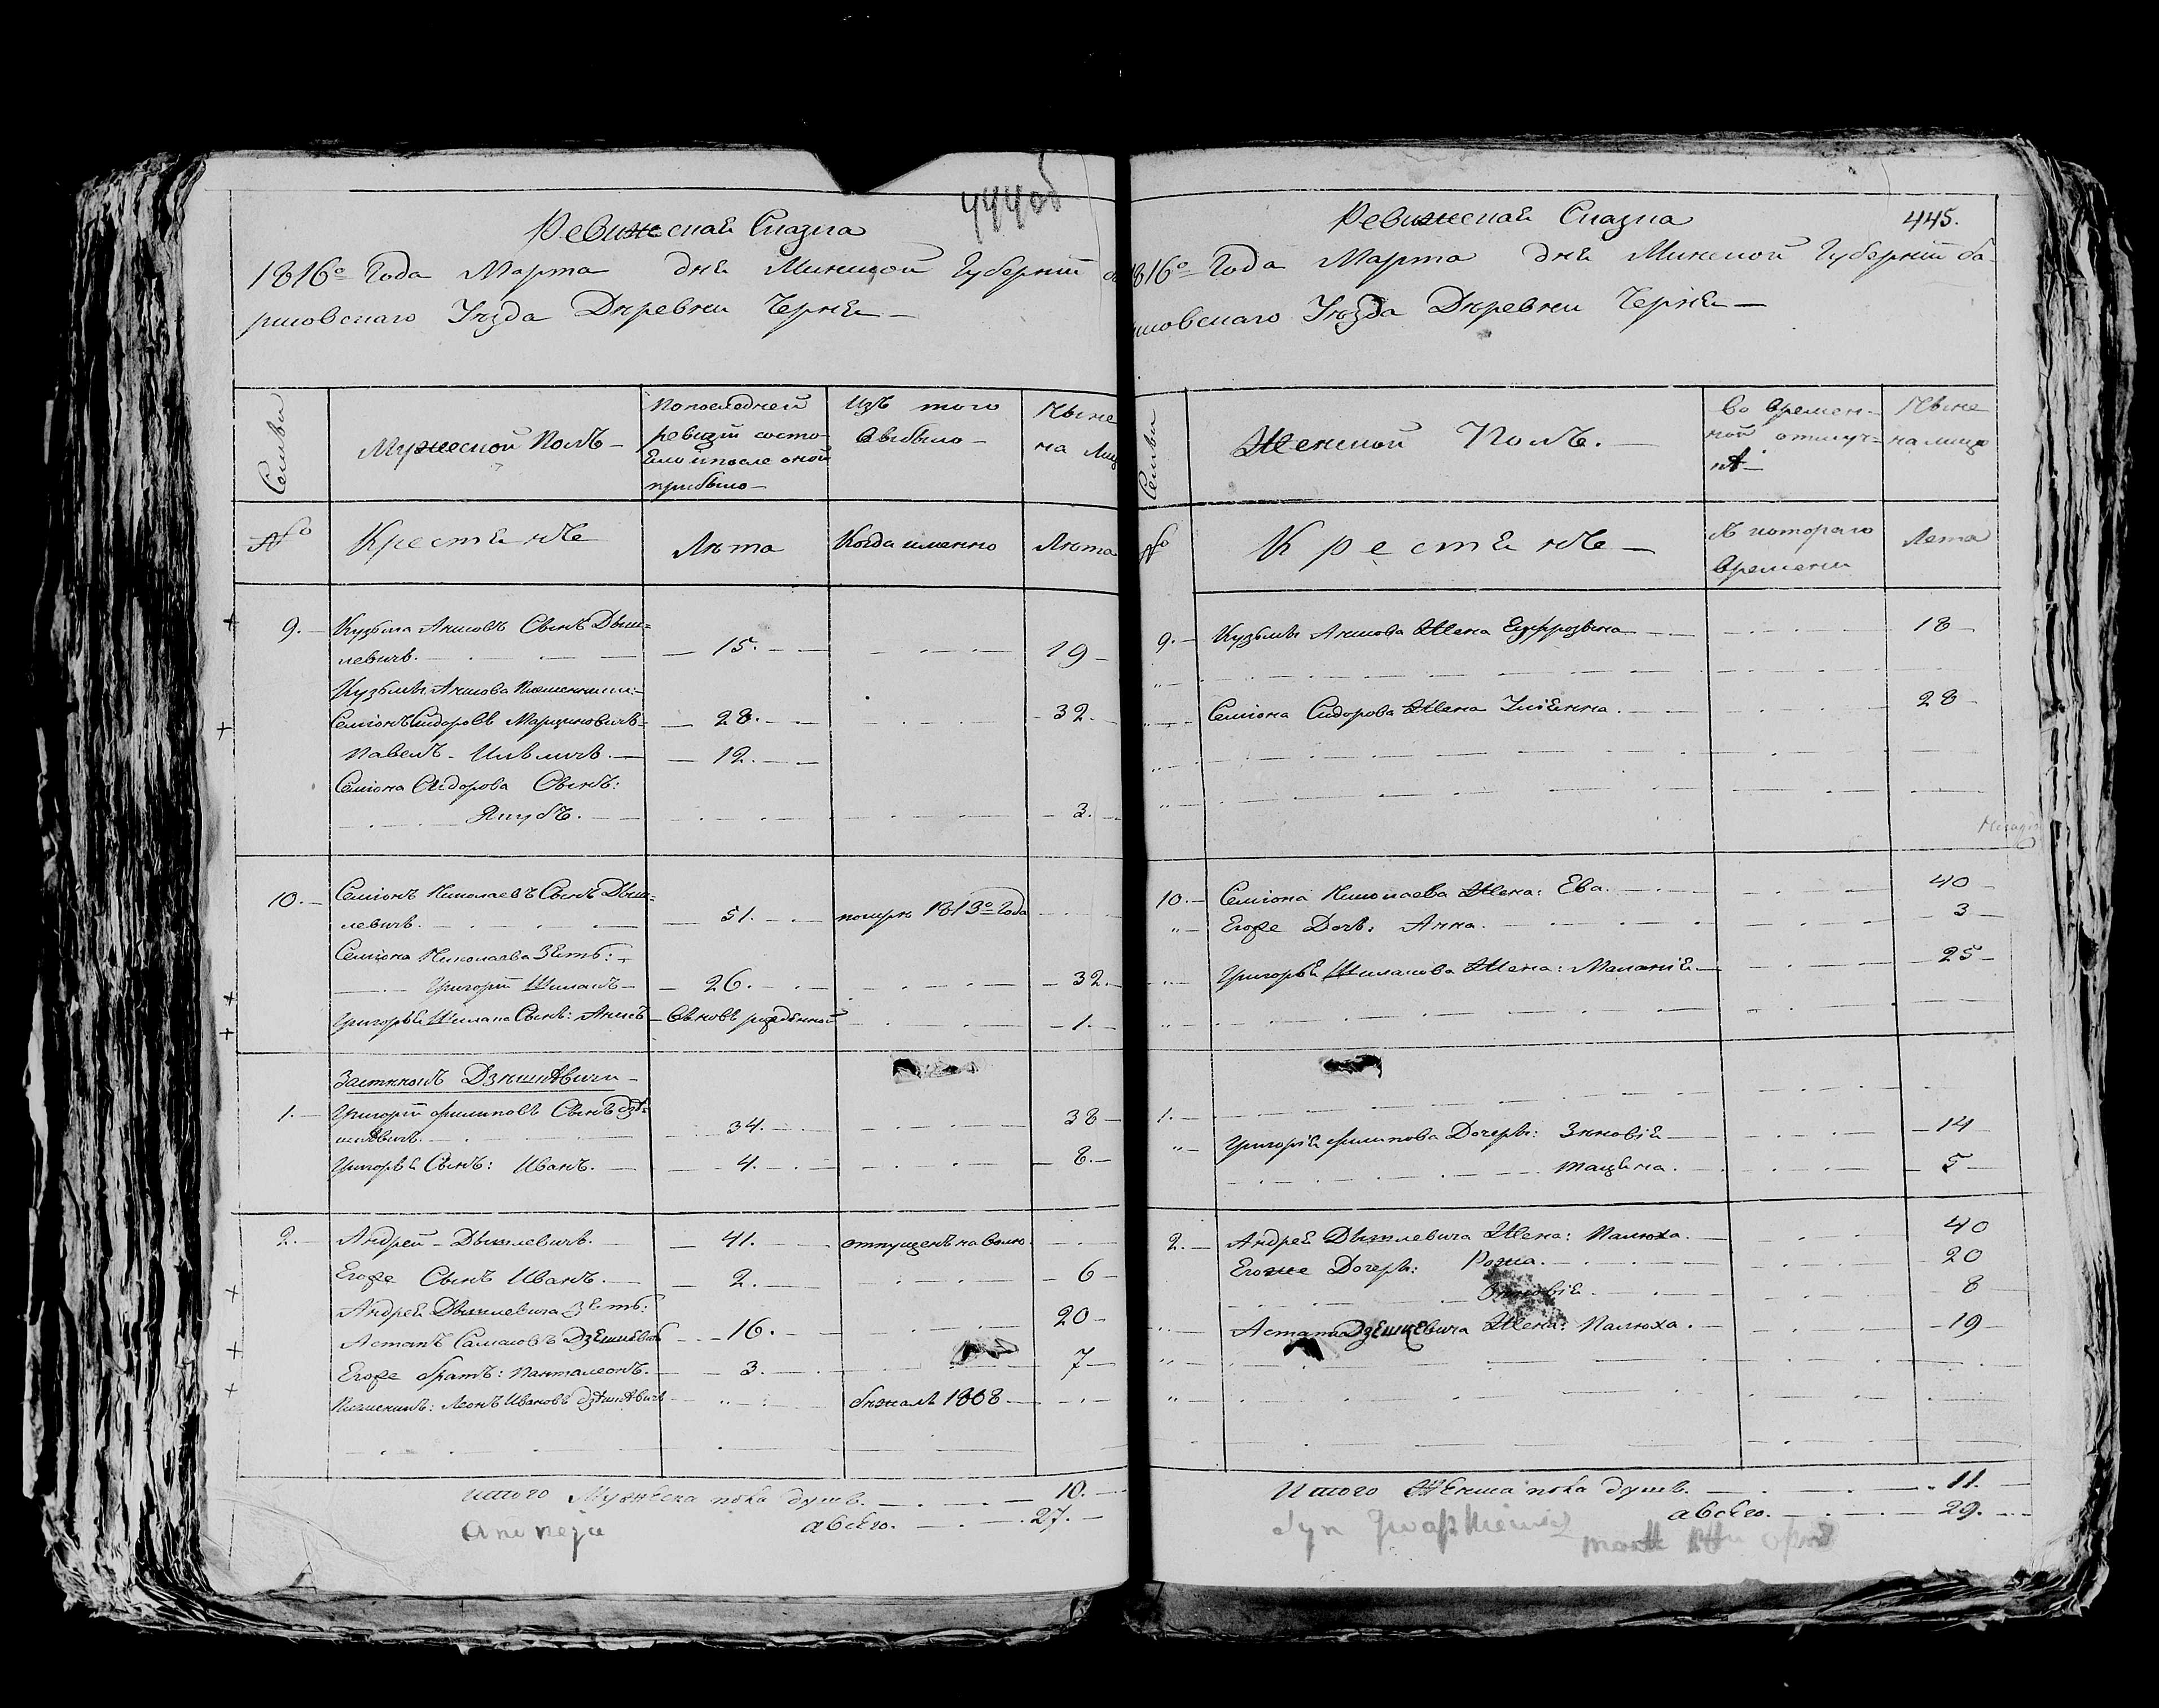 444об
Ревижская Сказка
1816го Года Марта дня Минской Губернии бо
рисовскаго Уѣзда Деревни Черня —
Семьи
Мужеской Полъ —
По последней
ревизіи состо-
яло и после оной
прибыло —
Изъ того
выбыло —
Ныне
на Лиц
№
Крестьяне
Лѣта
Когда именно
Лѣта
9. — Кузьма Якимовъ Сынъ Дыш=
левичъ. — 15. — 19 —
Кузьмы Якимова Племенники:
Семіонъ Сидоровъ Марциновичъ — 28. — 32. —
Павелъ — 12. —
Семіона Сидорова Сынъ:
Якубъ. — 3. —
10. — Семіонъ Николаевъ Сынъ Дыш=
левичъ. — 51. — помре 1813го Года
Семіона Николаева Зять: —
Григорій Шиланъ — 26. — 32. —
Григорья Шилана Сынъ: — вновь рожденной — 1. —
Застенокъ
1. — Григорій Филиповъ Сынъ Дзѣ=
— 34. — 38 —
Григорья Сынъ: Иванъ. — 4. — 8. —
2. — Андрей — Дышлевичъ. — 41. — отпущенъ на волю.
Егоже Сынъ Иванъ. — 2. — 6 —
Андрея Дышлевича Зять:
Астапъ — 16. — 20 —
Егоже братъ: Панталеонъ. — 3. — 7 —
Леонъ Ивановъ — бѣжалъ 1808 —
Итого Мужеска пола душъ. — 10. —
а всего. — 27. —
445.
Ревижская Сказка
1816го Года Марта дня Минской Губерніи бо-
рисовскаго Уѣзда Деревни Черня —
Семьи
Женской Полъ. —
Во времен-
ной отлуч-
кѣ —
Ныне
на лицо
№
Крестьяне —
Съ котораго
времени
Лета
9. — Кузьмы Якимова Жена Еуфрозына — 18 —
Семіона Сидорова Жена Уліянна. — 28 —
10. — Семіона Николаева Жена: Ева. — 40 —
Егоже Дочь: Анна. — 3 —
Григорья Шиланова Жена: Маланія — 25 —
1. —
Григорія Филипова Дочери: Зиновія — 14 —
Тацяна. — 5 —
2. — Андрея Дышлевича Жена: Палюха. — 40
Егоже Дочери: — 20
8
Жена: Палюха. — 19 —
Итого Женска пола душъ. — 11. —
а всего. — 29. —